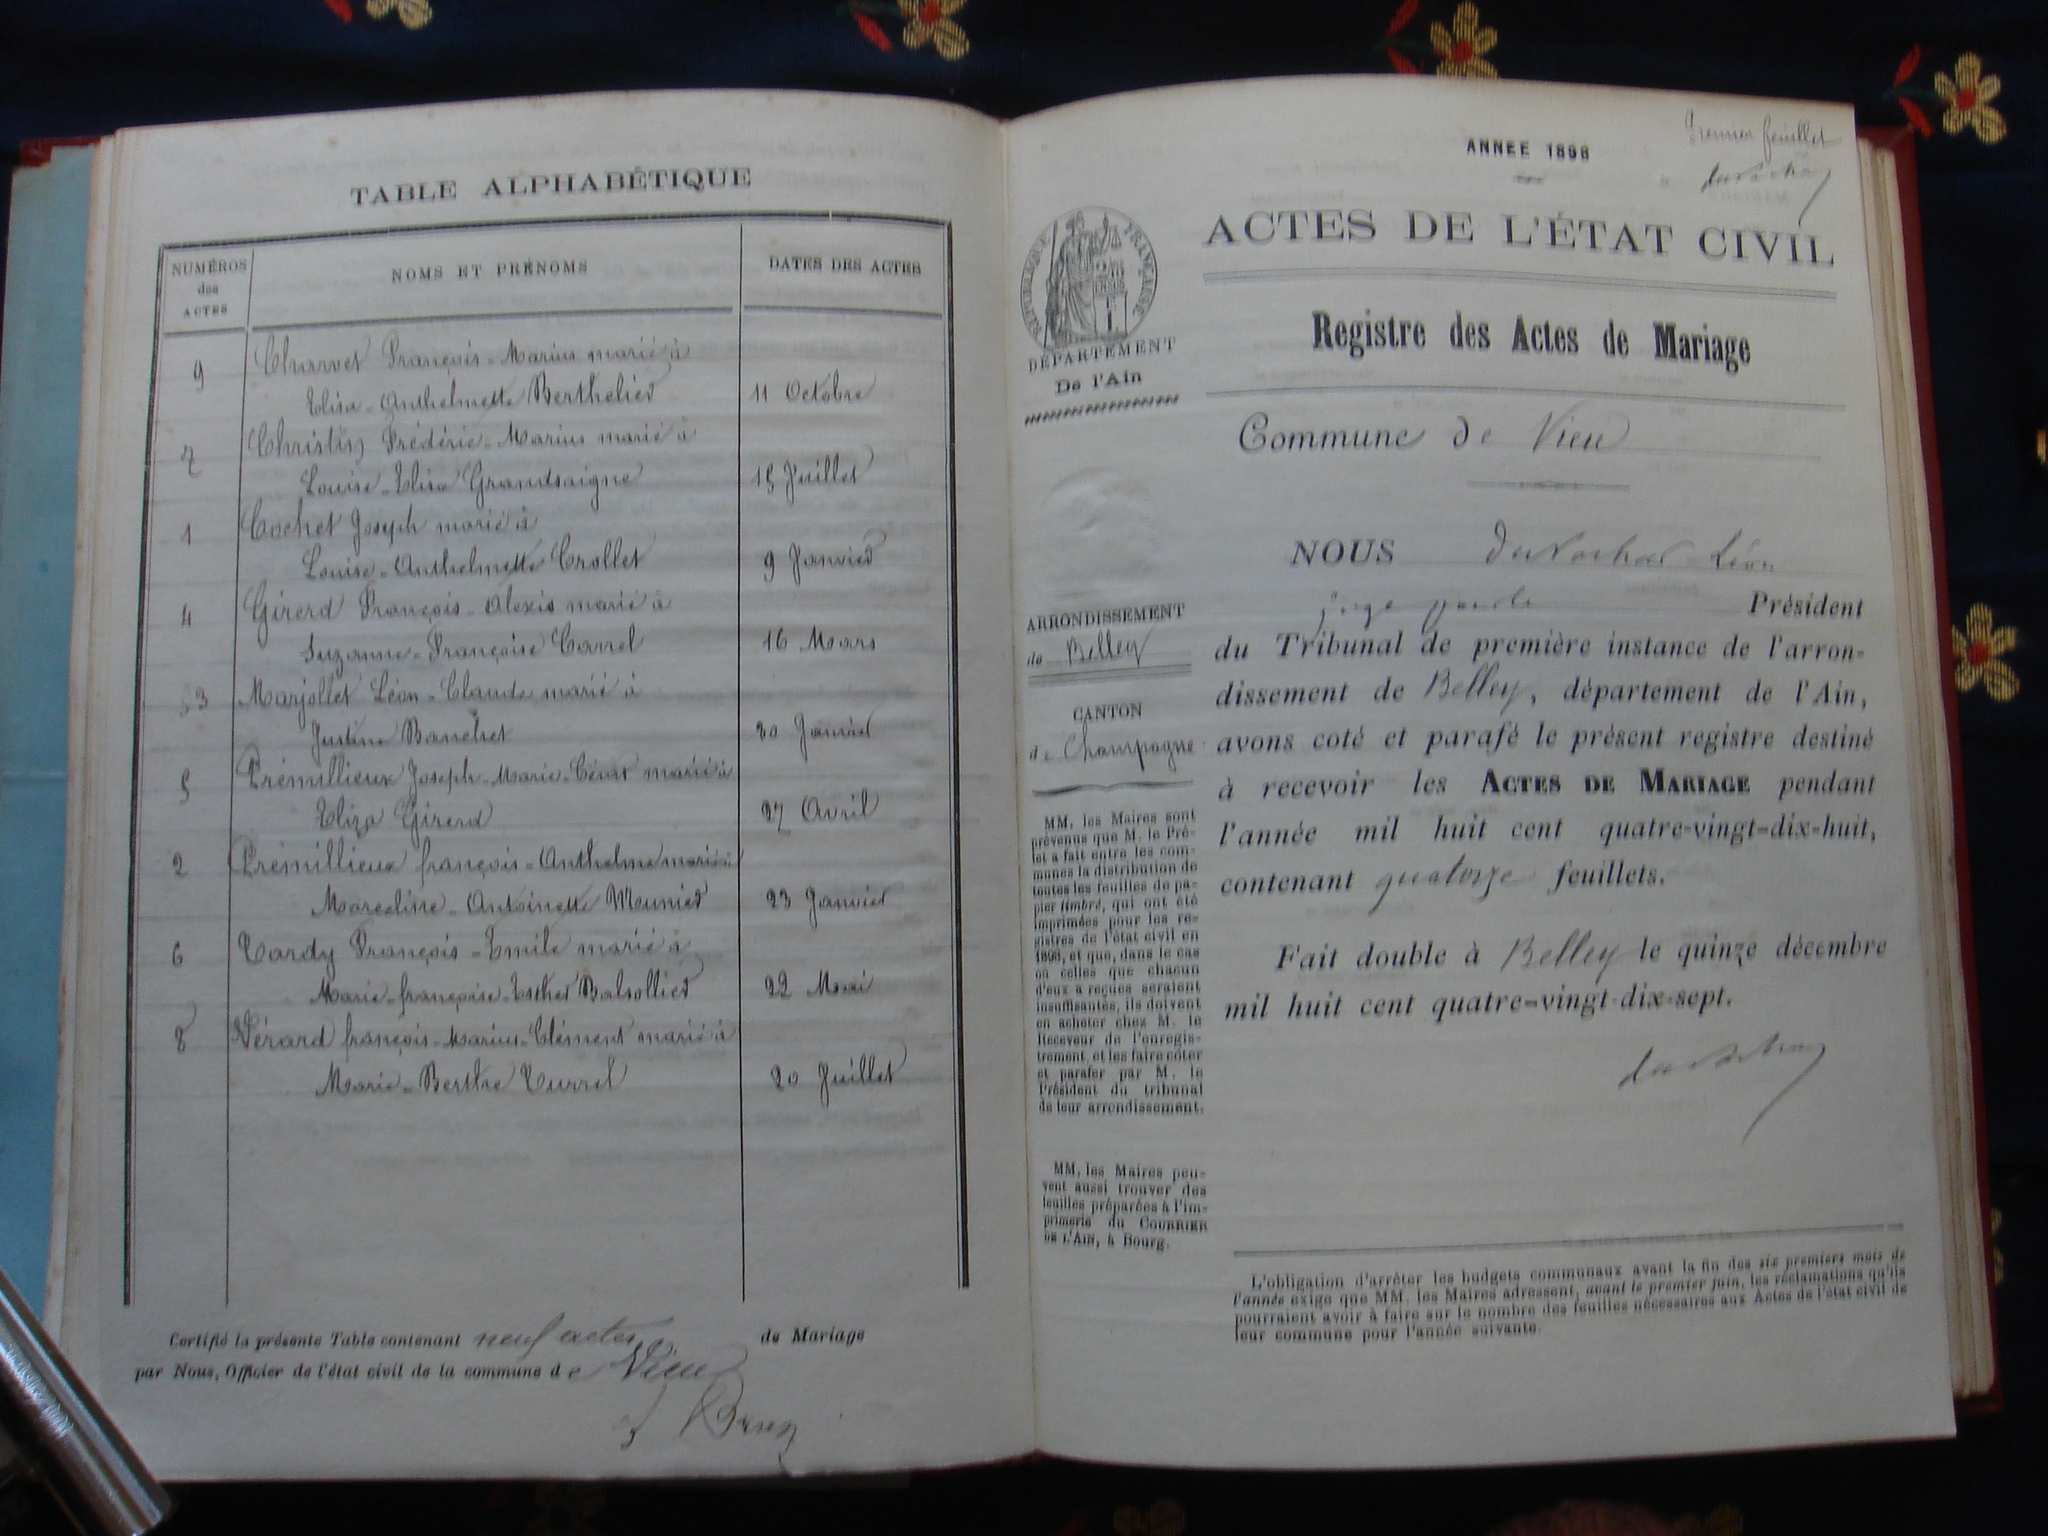 TABLE ALPHABÉTIQUE
NUMÉROS des ACTES
NOMS ET PRÉNOMS
DATES DES ACTES
9 Charvet François-Marius marié à
Eliza-Anthelmette Berthelier 11 Octobre
7 Christin Frédéric-Marius marié à
Louise-Eliza Grandsaigne 15 Juillet
1 Cochet Joseph marié à
Louise-Anthelmette Crollet 9 Janvier
4 Girerd François-Alexis marié à
Suzanne-Françoise Carrel 16 Mars
3 Marjollet Léon-Claude marié à
Justine Banchet 20 Janvier
5 Prémillieux Joseph-Marie-César marié à
Eliza Girerd 27 Avril
2 Prémillieux françois-Anthelme marié à
Marceline-Antoinette Meunier 23 Janvier
6 Tardy François-Emile marié à
Marie-françoise-Esther Balvollier 22 Mai
8 Vérard françois-Marius-Clément marié à
Marie-Berthe Turrel 20 Juillet
Certifié la présente Table contenant neuf actes de Mariage
par Nous, Officier de l'état civil de la commune de Vieu
Premier feuillet
ANNÉE 1898
RÉPUBLIQUE FRANÇAISE
ACTES DE L'ÉTAT CIVIL
DÉPARTEMENT
De l'Ain
Registre des Actes de Mariage
Commune de Vieu
ARRONDISSEMENT
de Belley
CANTON
de Champagne
MM. les Maires sont
prévenus que M. le Pré-
fet a fait entre les com-
munes la distribution de
toutes les feuilles de pa-
pier timbré, qui ont été
imprimées pour les re-
gistres de l'état civil en
1898, et que, dans le cas
où celles que chacun
d'eux a reçues seraient
insuffisantes, ils doivent
en acheter chez M. le
Receveur de l'enregis-
trement, et les faire côter
et parafer par M. le
Président du tribunal
de leur arrondissement.
MM. les Maires peu-
vent aussi trouver des
feuilles préparées à l'im-
primerie du COURRIER
DE L'AIN, à Bourg.
NOUS Léon
Président
du Tribunal de première instance de l'arron-
dissement de Belley, département de l'Ain,
avons coté et parafé le présent registre destiné
à recevoir les ACTES DE MARIAGE pendant
l'année mil huit cent quatre-vingt-dix-huit,
contenant quatorze feuillets.
Fait double à Belley le quinze décembre
mil huit cent quatre-vingt-dix-sept.
L'obligation d'arrêter les budgets communaux avant la fin des six premiers mois de
l'année exige que MM. les Maires adressent, avant le premier juin, les réclamations qu'ils
pourraient avoir à faire sur le nombre des feuilles nécessaires aux Actes de l'état civil de
leur commune pour l'année suivante.